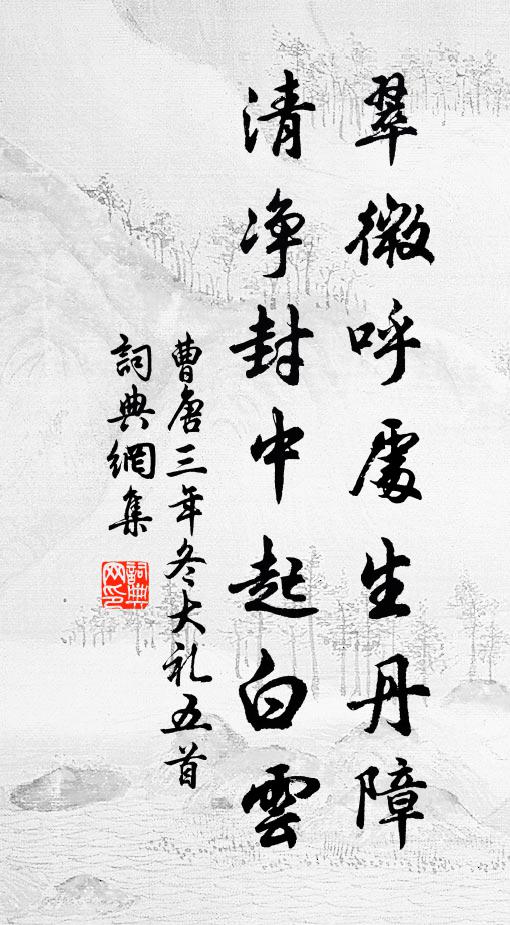 翠微呼處生丹障
清净封中起白雲
曹唐三年冬大礼五首
詞典網集
詞典网印